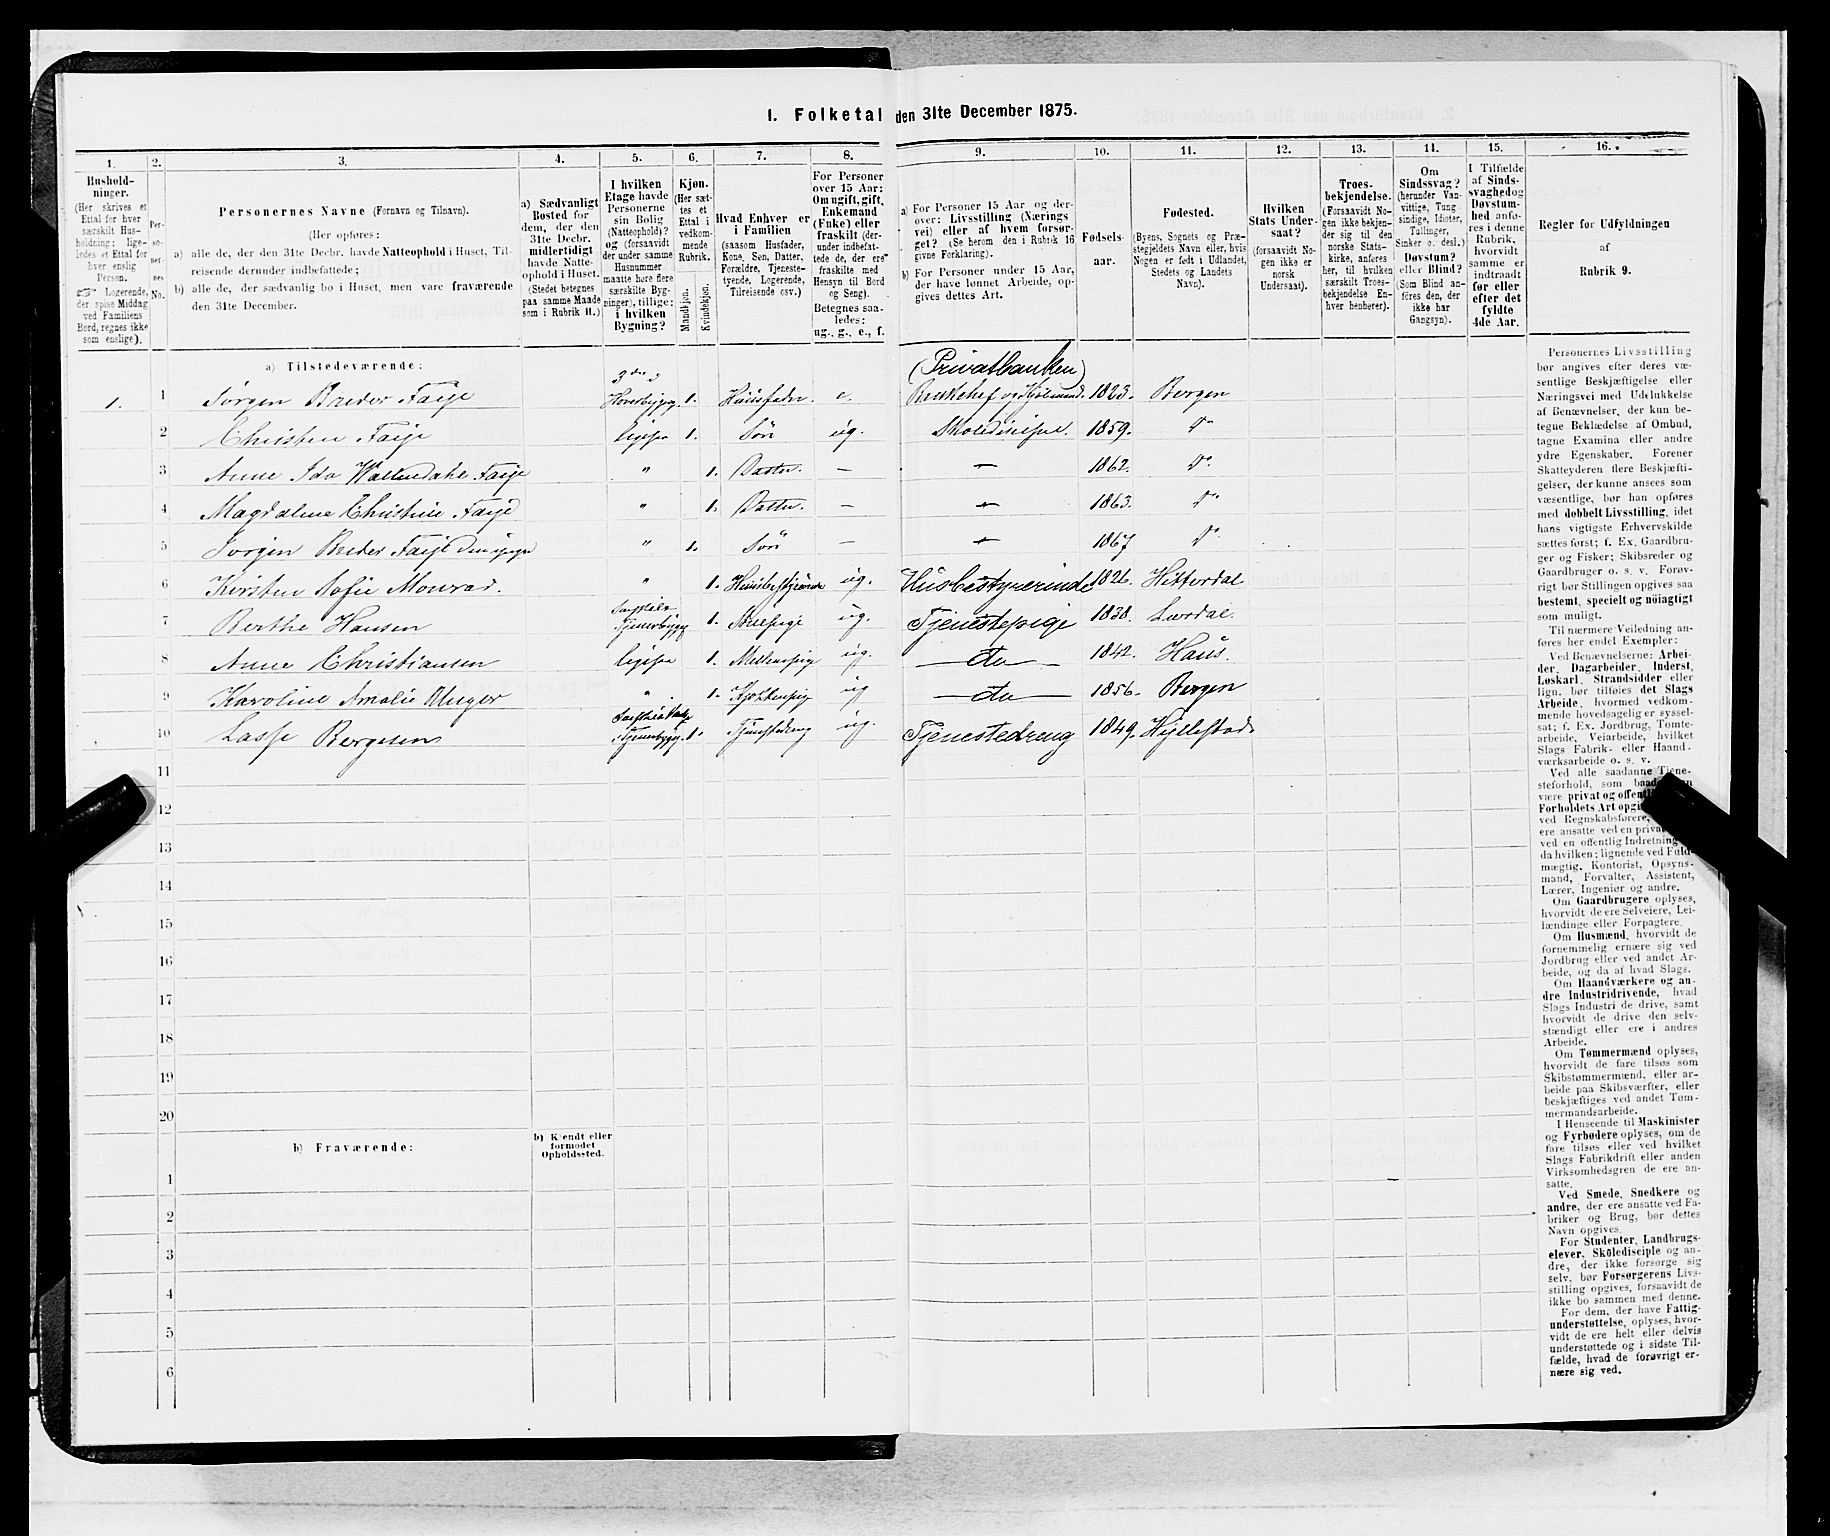 1. Folketal den 31te December 1875.
1. 2. 3. 4. 5. 6. 7. 8. 9. 10. 11. 12. 13. 14. 15. 16.
Hushold-
ninger.
(Her skrives et
Ettal for hver
særskilt Hus-
holdning; lige-
ledes et Ettal for
hver enslig
Person.
☞ Logerende,
der spise Middag
ved Familiens
Bord, regnes ikke
som enslige).
Per-
so-
ner-
nes
No.
Personernes Navne (Fornavn og Tilnavn).
(Her opføres:
a) alle de, der den 31te Decbr. havde Natteophold i Huset, Til-
reisende derunder indbefattede;
b) alle de, der sædvanlig bo i Huset, men vare fraværende
den 31te December.
a) Sædvanligt
Bosted for
dem, der den
31te Decbr.
midlertidigt
havde Natte-
ophold i Huset.
(Stedet betegnes
paa samme Maade
som i Rubrik 11.)
I hvilken
Etage havde
Personerne
sin Bolig
(Natteophold)?
og (forsaavidt
der under samme
Husnummer
maatte høre flere
særskilte Byg-
ninger), tillige:
i hvilken
Bygning?
Kjøn.
(Her sæt-
tes et
Ettal i
vedkom-
mende
Rubrik.
Mandkjøn.
Kvindekjøn.
Hvad Enhver er
i Familien
(saasom Husfader,
Kone, Søn, Datter,
Forældre, Tjeneste-
tyende, Logerende,
Tilreisende osv.)
For Personer
over 15 Aar:
Om ugift, gift,
Enkemand
(Enke) eller
fraskilt (der-
under indbefat-
tede de, der ere
fraskilte med
Hensyn til Bord
og Seng).
Betegnes saa-
ledes:
ug., g., e., f.
a) For Personer 15 Aar og der-
over: Livsstilling (Nærings
vei) eller af hvem forsør-
get? (Se herom den i Rubrik 16
givne Forklaring).
b) For Personer under 15 Aar,
der have lønnet Arbeide, op-
gives dettes Art.
Fødsels-
aar.
Fødested.
(Byens, Sognets og Præ-
stegjeldets Navn eller, hvis
Nogen er født i Udlandet,
Stedets og Landets
Navn).
Hvilken
Stats Under-
saat?
(forsaavidt No-
gen ikke er
norsk
Undersaat).
Troes-
bekjendelse.
(Forsaavidt No-
gen ikke bekjen-
der sig til den
norske Stats-
kirke, anføres
her, til hvilken
særskilt Troes-
bekjendelse En-
hver henhører).
Om
Sindssvag?
(herunder Van-
vittige, Tung
sindige, Idioter,
Tullinger,
Sinker o. desl.)
Døvstum?
eller Blind?
(Som Blind an-
føres den, der
ikke har
Gangsyn).
I Tilfælde
af Sinds-
svaghed og
Døvstum-
hed anfø-
res i denne
Rubrik,
hvorvidt
samme er
indtraadt
før eller
efter det
fyldte
4de Aar.
Regler for Udfyldningen
af
Rubrik 9.
a) Tilstedeværende:
(Privatbanken)
1. 1 Jørgen Breder Faye 1. Huusfader e. 1823. Bergen
2 Christen Faye ligesaa 1. Søn ug. 1859. do
3 Anne Ida Faye " 1. Datter. — — 1862. do
4 Magdaline Christine Faye " 1. Datter. — — 1863. do
5 Jørgen Breder Faye " 1. Søn — — 1867 do
6 Kirsten Sofie Monrad. " 1. ug. Husbestyrerinde 1826. Hitterdal
7 Berthe Hansen 1. Stuepige ug. Tjenestepige 1838. Lærdal.
8 Anne Christiansen ligesaa 1. Mellempige ug. do 1842. Haus.
9 Karoline Amalie Unger " 1. Kjøkkenpig ug do 1856. Bergen
10 Lasse Børgesen 1. Tjenestedreng ug. Tjenestedreng 1849. Hjellestad
11
12
13
14
15
16
17
18
19
20
b) Fraværende:
b) Kjendt eller
formodet
Opholdssted.
1
2
3
4
5
6
Personernes Livsstilling
bør angives efter deres væ-
sentlige Beskjæftigelse eller
Næringsvei med Udelukkelse
af Benævnelser, der kun be-
tegne Beklædelse af Ombud,
tagne Examina eller andre
ydre Egenskaber. Forener
Skatteyderen flere Beskjæfti-
gelser, der kunne ansees som
væsentlige, bør han opføres
med dobbelt Livsstilling, idet
hans vigtigste Erhvervskilde
sættes først; f. Ex. Gaardbru-
ger og Fisker; Skibsreder og
Gaardbruger o. s. v. Forøv-
rigt bør Stillingen opgives saa
bestemt, specielt og nöiagtigt
som muligt.
Til nærmere Veiledning an-
føres her endel Exempler:
Ved Benævnelserne: Arbei-
der, Dagarbeider, Inderst,
Løskarl, Strandsidder eller
lign. bør tilføies det Slags
Arbeide, hvormed vedkom-
mende hovedsagelig er syssel-
sat; f. Ex. Jordbrug, Tomte-
arbeide, Veiarbeide, hvilket
Slags Fabrik- eller Haand-
værksarbeide o. s. v.
Ved alle saadanne Tjene-
steforhold, som baade kan
være privat og offentl
Forholdets Art opgi
ved Regnskabsførere,
ere ansatte ved en privat
ved en offentlig Indretning
da hvilken; lignende ved Fuld-
mægtig, Kontorist, Opsyns-
mand, Forvalter, Assistent,
Lærer, Ingeniør og andre.
Om Gaardbrugere oplyses,
hvorvidt de ere Selveiere, Lei-
lændinge eller Forpagtere.
Om Husmænd, hvorvidt de
fornemmelig ernære sig ved
Jordbrug eller ved andet Ar-
beide, og da af hvad Slags.
Om Haandværkere og an-
dre Industridrivende, hvad
Slags Industri de drive, samt
hvorvidt de drive den selv-
stændigt eller ere i andres
Arbeide.
Om Tømmermænd oplyses,
hvorvidt de fare tilsøs som
Skibstømmermænd, eller ar-
beide paa Skibsværfter, eller
beskjæftiges ved andet Tøm-
mermandsarbeide.
I Henseende til Maskinister
og Fyrbødere oplyses, om de
fare tilsøs eller ved hvilket
Slags Fabrikdrift eller anden
Virksomhedsgren de ere an-
satte.
Ved Smede, Snedkere og
andre, der ere ansatte ved Fa-
briker og Brug, bør dettes
Navn opgives.
For Studenter, Landbrugs-
elever, Skoledisciple og an-
dre, der ikke forsørge sig
selv, bør Forsørgerens Livs-
stilling opgives, forsaavidt de
ikke bo sammen med denne.
For dem, der have Fattig-
understøttelse, oplyses, hvor-
vidt de ere helt eller delvis
understøttede og i sidste Til-
fælde, hvad de forøvrigt er-
nære sig ved.